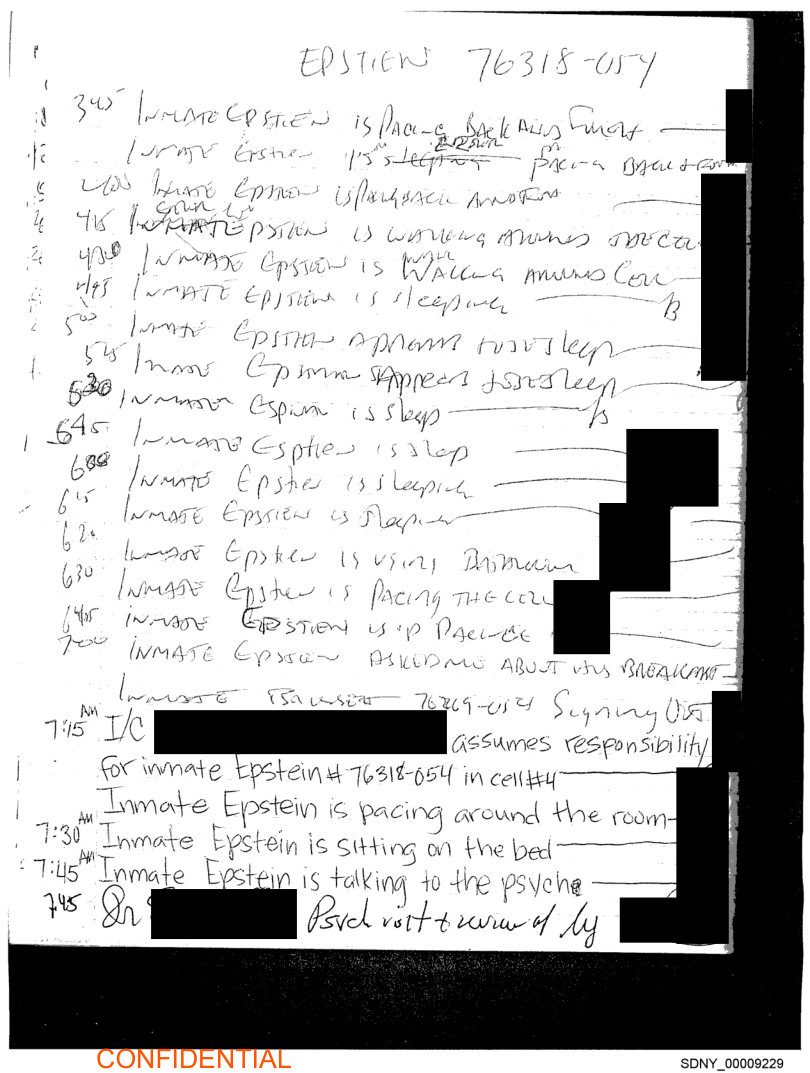 EPSTIEN 76318-054
345 INMATE EPSTIEN IS PACING BACK AND
INMATE Epstien is sleeping PACING BACK &
400 INMATE EPSTIEN IS PACING BACK AND
415 INMATE EPSTIEN IS WALKING AROUND THE CELL
430 INMATE EPSTIEN IS WALKING AROUND CELL
445 INMATE EPSTIEN IS sleeping
500 INMATE EPSTIEN APPEARS TO BE Sleep
INMATE Appears to be sleep
530 INMATE is sleep
645 INMATE Esptien is slep
600 INMATE Epstien is sleeping
615 INMATE EPSTIEN is sleeping
620 INMATE Epstien IS USING BATHROOM
630 INMATE Epstien IS PACING THE CELL
645 INMATE EPSTIEN IS
700 INMATE EPSTIEN ASKED ME ABOUT HIS BREAKFAST
INMATE Signing Out
7:15 AM I/C
assumes responsibility
for inmate Epstein # 76318-054 in cell #4
Inmate Epstein is pacing around the room-
7:30 AM Inmate Epstein is sitting on the bed
7:45 AM Inmate Epstein is talking to the psych
745 Dr Psych by
CONFIDENTIAL
SDNY_00009229